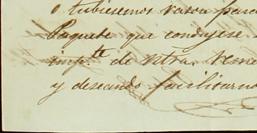 o tubiesemos vasos para
Paquete que condujese
imp.te de Vtra. Reme
y deseando facilitarno